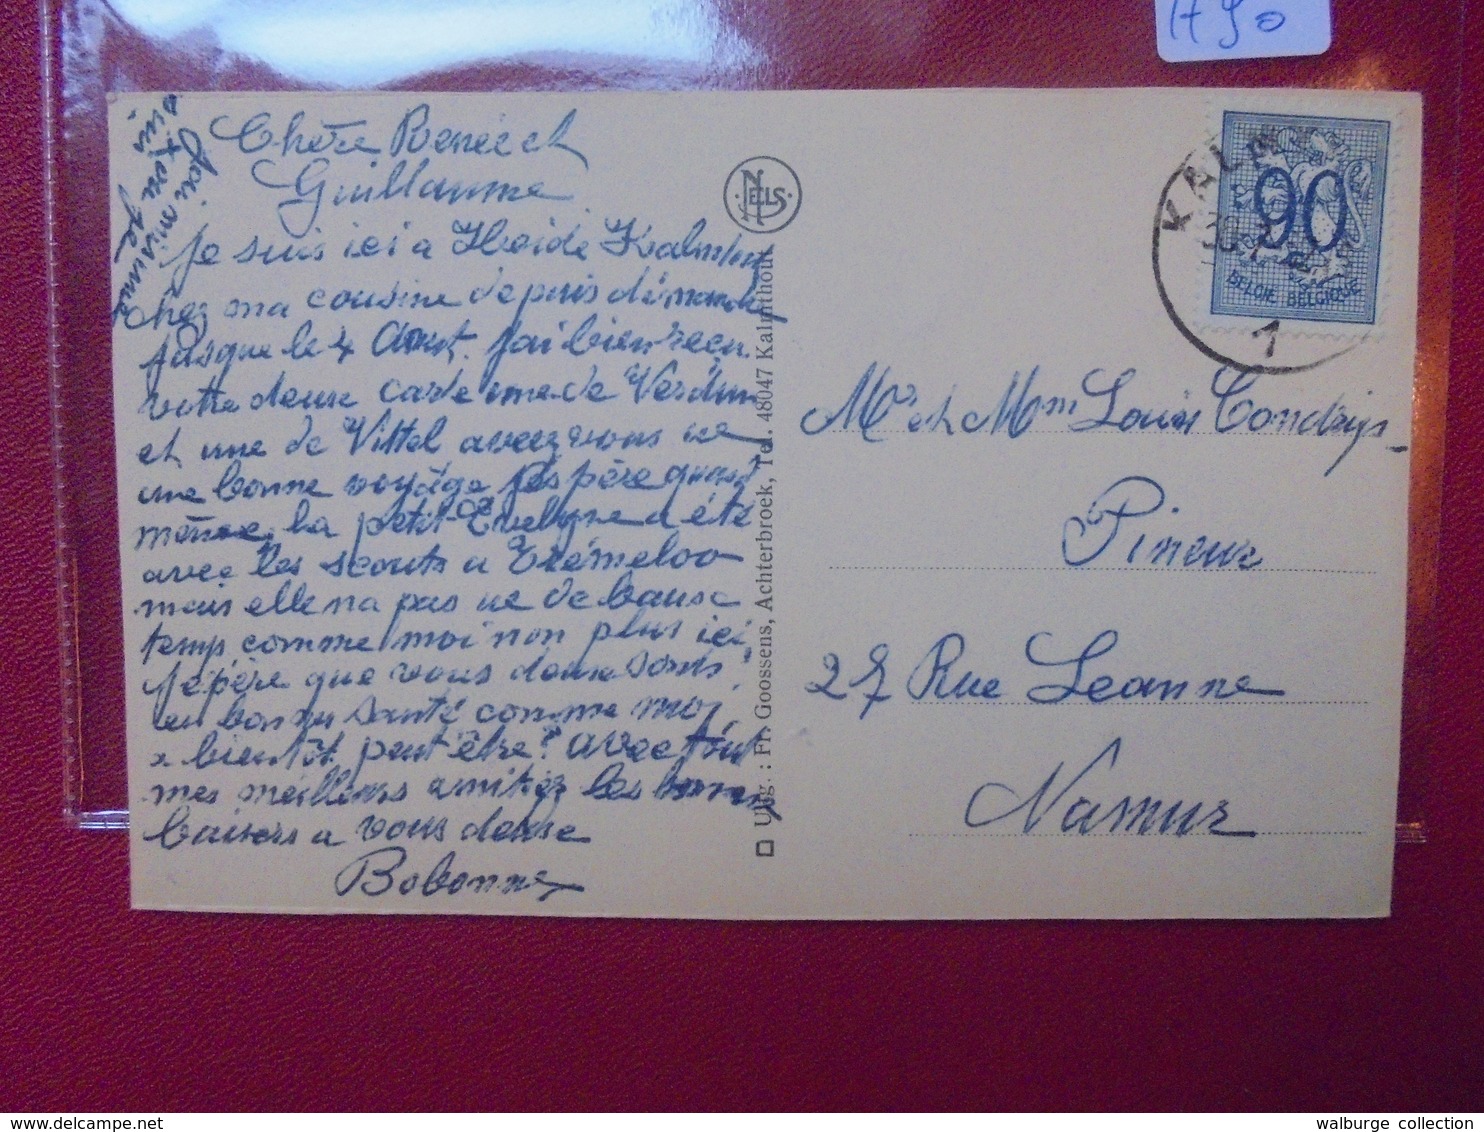 H50
Chère Renée et
Guillaume
Je suis ici a Heide Kalmthout
chez ma cousine depuis dimanche
jusque le 4 Aout. J'ai bien reçu
votre deux carte une de Verdun
et une de Vittel avez vous ue
une bonne voyage J'espère quand
même. La petit Evelyne a été
avec les scouts a Trémeloo
mais elle na pas ue de beause
temps comme moi non plus ici,
J'epère que vous deuse sonts
en bonne santé comme moi
a bientôt peut être? avec tout
mes meilleurs amitiez les bonnes
baisers a vous deuse
Bobonne
NELS
Uitg. : Fr. Goossens, Achterbroek, Tel. 48047 Kalmthout
KALM
1
90
BELGIE BELGIQUE
Mr et Mme Louis Tondrys-
Pineur
27 Rue Leanne
Namur
walburge collection